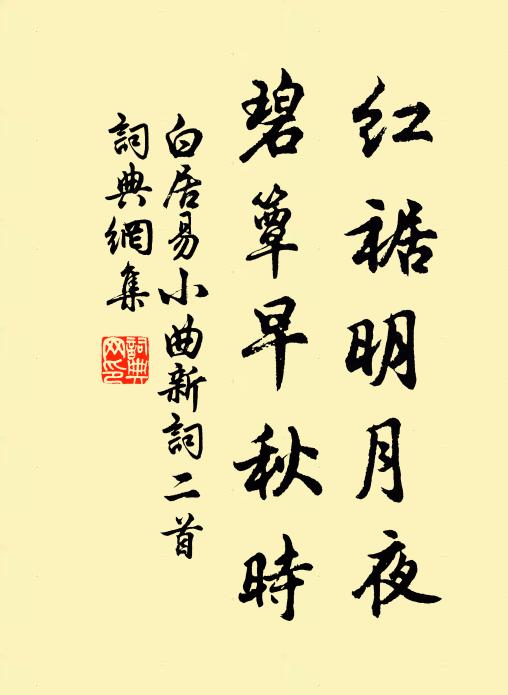 红裾明月夜
碧簟早秋時
白居易小曲新詞二首
詞典網集
詞典
网印